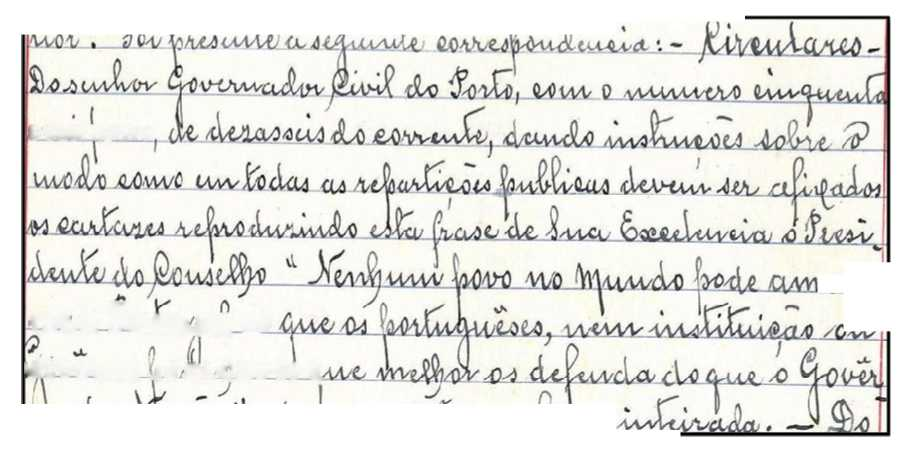 nor. Foi presente a seguinte correspondencia: - Circulares -
Do senhor Governador Civil do Porto, com o numero cinquenta
, de dezasseis do corrente, dando instruções sobre o
modo como em todas as repartições publicas devem ser afixados
os cartazes reproduzindo esta frase de Sua Excelencia o Presi-
dente do Conselho " Nenhum povo no mundo pode am
que os portuguêses, nem instituição ou
ue melhor os defenda do que o Govêr
inteirada. — Do